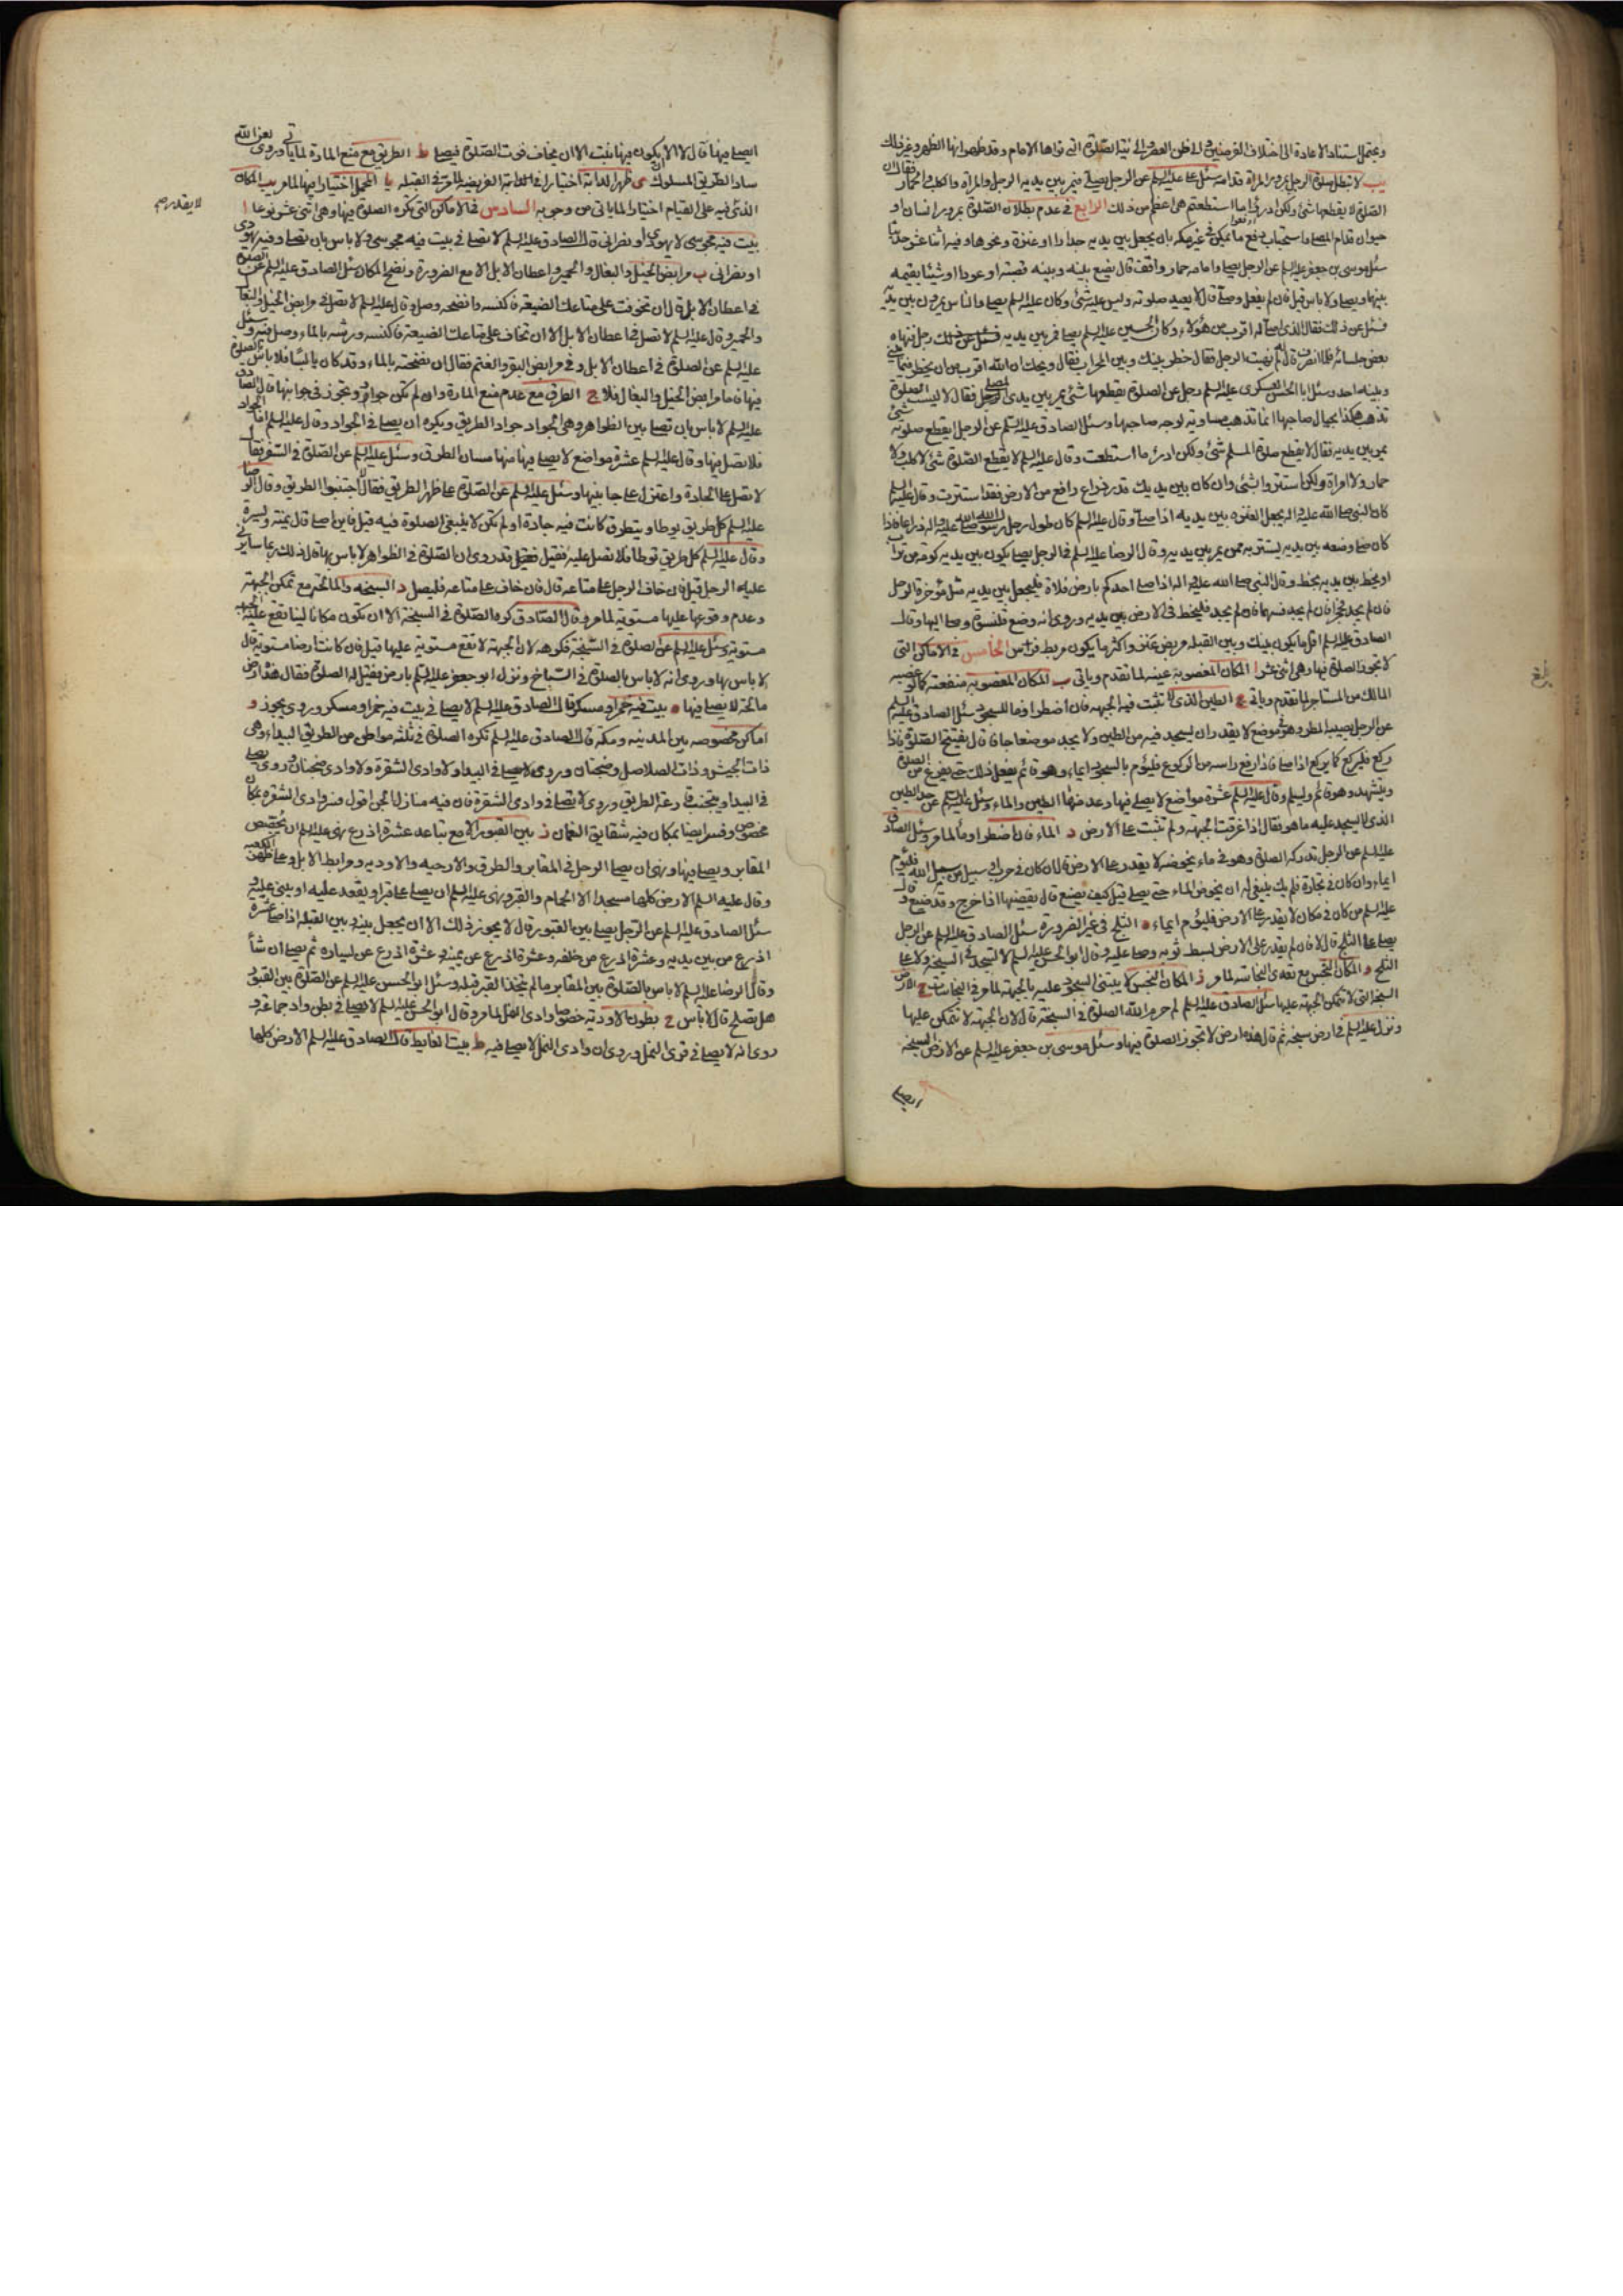 ويحتمل استناد الاعادة الى اختلاف الفرضين والى ظن العصر والى نية الصلوة التى نواها الامام وقد ظهر انها الظهر وغير ذلك
يب لا تبطل صلوة الرجل بمرور المراة قدامه سئل على عليه السلم عن الرجل يصلى فيمر بين يديه الرجل والمراة والكلب والحمار فقال ان
الصلوة لا يقطعها شئ ولكن ادرؤا ما استطعتم هى اعظم من ذلك الرابع فى عدم بطلان الصلوة بمرور انسان او
حيوان قدام المصلى واستحباب دفع ما يمكن فى غير مكه بان يجعل بين يديه جدارا او عنزة ونحوها وفيه اثنا عشر حديثا
سئل موسى بن جعفر عليه السلم عن الرجل يصلى وامامه حمار واقف قال يضع بينه وبينه قصبة او عودا او شيئا يقيمه
بينها ويصلى ولا باس قيل فان لم يفعل وصلى قال لا يعيد صلوته وليس عليه شئ وكان عليه السلم يصلى والناس يمرون بين يديه
فسئل عن ذلك فقال الذى اصلى له اقرب من هؤلاء وكان الحسين عليه السلم يصلى فمر بين يديه رجل فنهاه
بعض جلسائه فلما انصرف قال لم نهيت الرجل فقال خطر بينك وبين المحراب فقال ويحك ان الله اقرب من ان يخطر فيما بينى
وبينه احد وسئل ابا الحسن العسكرى عليه السلم رجل عن الصلوة يقطعها شئ يمر بين يدى المصلى فقال لا ليست الصلوة
تذهب هكذا بحيال صاحبها انما تذهب مساوية لوجه صاحبها وسئل الصادق عليه السلم عن الرجل ايقطع صلوته شئ
يمر بين يديه فقال لا يقطع صلوة المسلم شئ ولكن ادرئ ما استطعت وقال عليه السلم لا يقطع الصلوة شئ لا كلب ولا
حمار ولا امراة ولكن استتروا بشئ وان كان بين يديك قدر ذراع رافع من الارض فقد استترت وقال عليه السلم
كان النبى صلى الله عليه واله يجعل العنزه بين يديه اذا صلى وقال عليه السلم كان طول رحل رسول الله صلى الله عليه واله ذراعا فاذا
كان صلى وضعه بين يديه يستتر به ممن يمر بين يديه وقال الرضا عليه السلم فى الرجل يصلى يكون بين يديه كومة من تراب
او يخط بين يديه بخط وقال النبى صلى الله عليه واله اذا صلى احدكم بارض فلاة فليجعل بين يديه مثل مؤخرة الرحل
فان لم يجد فحجرا فان لم يجد فسهما فان لم يجد فليخط فى الارض بين يديه وروى انه وضع قلنسوة وصلى اليها وقال
الصادق عليه السلم اقل ما يكون بينك وبين القبله مربض عنز واكثر ما يكون مربط فرس الخامس فى الاماكن التى
لا تجوز الصلوة فيها وهى اثنى عشر ا المكان المغصوبة عينه لما تقدم وياتى ب المكان المغصوبه منفعته كما لو غصبه
المالك من المستاجر لما تقدم وياتى ج الطين الذى لا تثبت فيه الجبهه فان اضطر اوما للسجود سئل الصادق عليه السلم
عن الرجل يصيبه المطر وهو فى موضع لا يقدر ان يسجد فيه من الطين ولا يجد موضعا جافا قال يفتتح الصلوة فاذا
ركع فليركع كما يركع اذا صلى فاذا رفع راسه من الركوع فليؤم بالسجود ايماء وهو قائم يفعل ذلك حتى يفرغ من الصلوة
ويتشهد وهو قائم ويسلم وقال عليه السلم عشرة مواضع لا يصلى فيها وعد منها الطين والماء وسئل عليه السلم عن حد الطين
الذى لا يسجد عليه ما هو فقال اذا غرقت الجبهة ولم تثبت على الارض د الماء فان اضطر اوما لما مر وسئل الصادق
عليه السلم عن الرجل تدركه الصلوة وهو فى ماء يخوضه لا يقدر على الارض قال ان كان فى حرب او سبيل من سبيل الله فليؤم
ايماء وان كان فى تجارة فلم يك ينبغى له ان يخوض الماء حتى يصلى قيل كيف يصنع قال يقضيها اذا خرج وقد ضيع وقال
عليه السلم من كان فى مكان لا يقدر على الارض فليؤم ايماء ه الثلج فى غير الضرورة سئل الصادق عليه السلم عن الرجل
يصلى على الثلج قال لا فان لم يقدر على الارض بسط ثوبه وصلى عليه وقال ابو الحسن عليه السلم لا تسجد فى السبخة ولا على
الثلج و المكان النجس مع تعدى النجاسه لما مر ز المكان النجس لا يبتنى السجود عليه بالجبهة لما مر فى النجاسات ح الارض
السبخة التى لا تتمكن الجبهة عليها سئل الصادق عليه السلم لم حرم الله الصلوة فى السبخة قال لان الجبهة لا تتمكن عليها
ونزل عليه السلم فى ارض سبخه ثم قال هذه ارض لا تجوز الصلوة فيها وسئل موسى بن جعفر عليه السلم عن الارض السبخه
ايصلى
بلغ
ايصلى فيها قال لا الا ان يكون فيها نبت الا ان يخاف فوت الصلوة فيصلى ط الطريق مع منع المارة لما ياتى وروى
ى ظهر الدابة اختيارا فى الفريضه لما مر فى القبله يا المحمل اختيارا فيها لما مر يب المكان
الذى فيه على القيام اختيارا لما ياتى من وجوبه السادس فى الاماكن التى تكره الصلوة فيها وهى اثنى عشر نوعا ا
بيت فيه مجوسى لا يهودى او نصرانى قال الصادق عليه السلم لا تصلى فى بيت فيه مجوسى ولا باس بان تصلى وفيه يهودى
او نصرانى ب مرابض الخيل والبغال والحمير واعطان الابل الا مع الضرورة ونضح المكان سئل الصادق عليه السلم عن الصلوة
فى اعطان الابل قال ان تخوفت على متاعك الضيعة فاكنسه وانضحه وصل وقال عليه السلم لا تصل فى مرابض الخيل والبغال
والحمير وقال عليه السلم لا تصل فى اعطان الابل الا ان تخاف على متاعك الضيعة فاكنسه ورشه بالماء وصل فيه وسئل
عليه السلم عن الصلوة فى اعطان الابل وفى مرابض البقر والغنم فقال ان نضحته بالماء وقد كان يابسا فلا باس بالصلوة
فيها فاما مرابض الخيل والبغال فلا ج الطرق مع عدم منع المارة وان لم تكن جواد وتجوز فى جوانبها قال الصادق
عليه السلم لا باس بان تصلى بين الظواهر وهى الجواد جواد الطريق ويكره ان يصلى فى الجواد وقال عليه السلم اما الجواد
فلا تصل فيها وقال عليه السلم عشرة مواضع لا يصلى فيها منها مسان الطرق وسئل عليه السلم عن الصلوة فى السفر فقال
لا تصل على الجادة واعتزل على جانبيها وسئل عليه السلم عن الصلوة على ظهر الطريق فقال لا اجتنبوا الطريق وقال الرضا
عليه السلم كل طريق يوطا ويتطرق كانت فيه جادة او لم تكن لا ينبغى الصلوة فيه قيل فاين اصلى قال يمنة ويسرة
وقال عليه السلم كل طريق توطا فلا تصل عليه فقيل قد روى ان الصلوة فى الظواهر لا باس بها قال ذلك ربما سايرنى
عليه الرجل قيل فان خاف الرجل على متاعه قال فان خاف على متاعه فليصل د السبخه والمالحه مع تمكن الجبهة
وعدم وقوعها عليها مستوية لما مر وقال الصادق كره الصلوة فى السبخة الا ان تكون مكانا لينا تقع عليه الجبهه
مستويه وسئل عليه السلم عن الصلوة فى السبخة فكرهه لان الجبهة لا تقع مستوية عليها قيل فان كانت ارضا مستويه قال
لا باس بها وروى انه لا باس بالصلوة فى السباخ ونزل ابو جعفر عليه السلم بارض فقيل له الصلوة فقال هذا ارض
مالحة لا يصلى فيها ه بيت فيه خمر او مسكر قال الصادق عليه السلم لا يصلى فى بيت فيه خمر او مسكر وروى يجوز و
اماكن مخصوصه بين المدينه ومكه قال الصادق عليه السلم تكره الصلوة فى ثلثه مواطن من الطريق البيداء وهى
ذات الجيش وذات الصلاصل وضجنان وروى لا يصلى فى البيداء ولا وادى الشقرة ولا وادى ضجنان وروى يصلى
فى البيداء ويتجنب قارعة الطريق وروى لا تصلى فى وادى الشقرة فان فيه منازل الجن اقول فسر وادى الشقره بمكان
مخصوص وفسر ايضا بمكان فيه شقايق النعمان ز بين القبور الا مع تباعد عشرة اذرع نهى عليه السلم ان يجصص
المقابر ويصلى فيها ونهى ان يصلى الرجل فى المقابر والطرق والارحيه والاوديه ومرابط الابل وعلى ظهر الكعبه
وقال عليه السلم الارض كلها مسجد الا الحمام والقبر ونهى عليه السلم ان يصلى على قبر او يقعد عليه او يبنى عليه و
سئل الصادق عليه السلم عن الرجل يصلى بين القبور قال لا يجوز ذلك الا ان يجعل بينه وبين القبله اذا صلى عشرة
اذرع من بين يديه وعشرة اذرع من خلفه وعشرة اذرع عن يمينه وعشرة اذرع عن يساره ثم يصلى ان شاء
وقال الرضا عليه السلم لا باس بالصلوة بين المقابر ما لم يتخذ القبر قبله وسئل ابو الحسن عليه السلم عن الصلوة بين القبور
هل تصلح قال لا باس ح بطون الاودية خصوصا وادى النمل لما مر وقال ابو الحسن عليه السلم لا يصلى فى بطن واد جماعة و
روى انه لا يصلى فى قرى النمل وروى ان وادى النمل لا يصلى فيه ط بيت الغايط قال الصادق عليه السلم الارض كلها